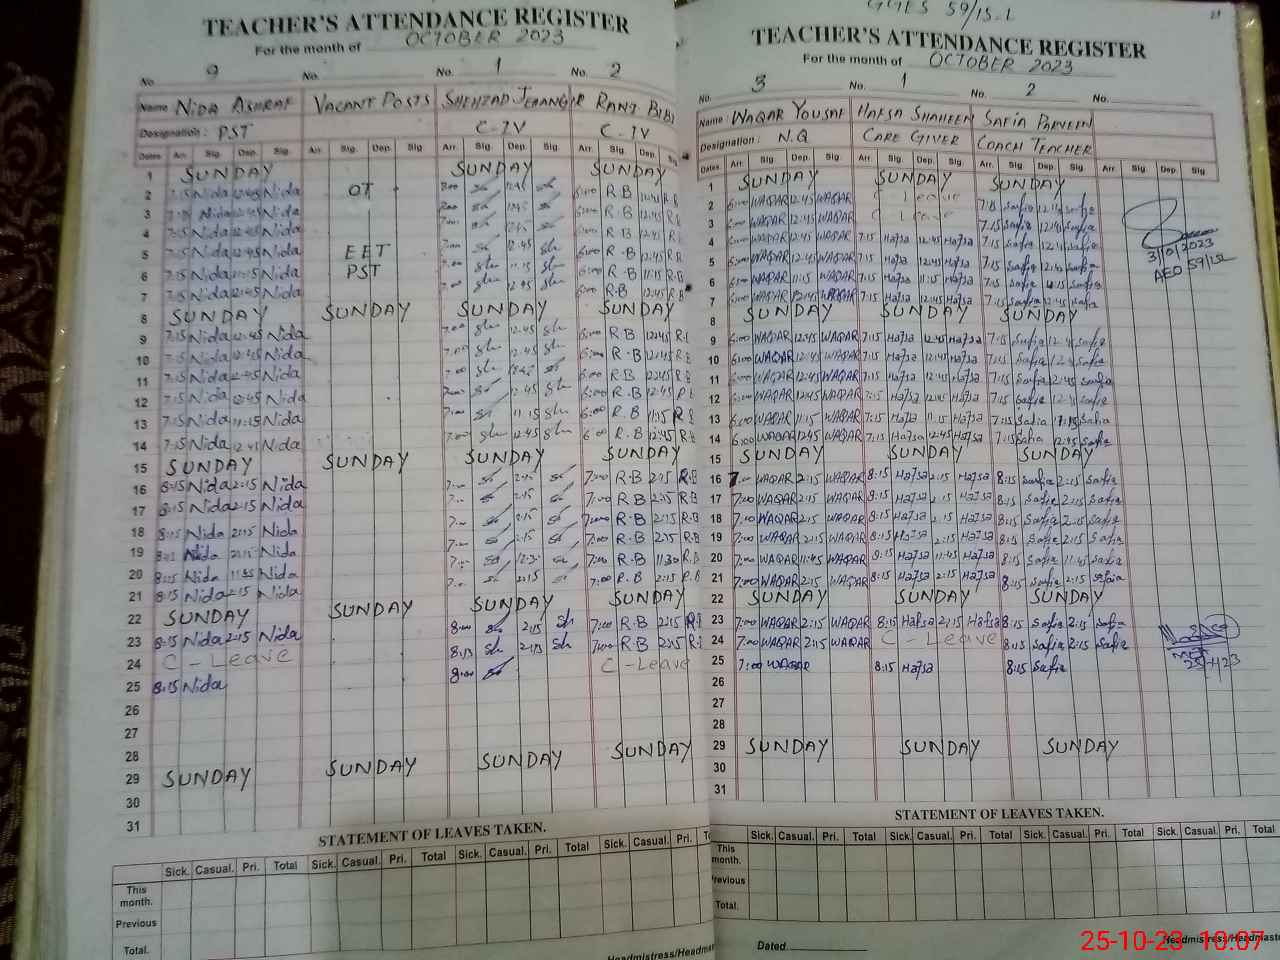 TEACHER'S ATTENDANCE REGISTER
For the month of OCTOBER 2023
No. 9 No. No. 1 No. 2
Name NIDA ASHRAF VACANT POSTS SHEHZAD JEHANGIR RANI BIBI
Designation: PST C-IV C-IV
Dates Arr. Sig. Dep. Sig. Arr. Sig. Dep. Sig Arr. Sig. Dep. Sig. Arr. Sig. Dep. Sig
1 SUNDAY SUNDAY SUNDAY
2 7:15 Nida 12:45 Nida OT 12:45 6:00 R.B 12:45 R.B
3 7:15 Nida 12:45 Nida 12:45 6:00 R.B 12:45 R.B
4 7:15 Nida 12:45 Nida 12:45 6:00 R.B 12:45 R.B
5 7:15 Nida 12:45 Nida EET 7:00 12:45 Sh 6:00 R.B 12:45 R.B
6 7:15 Nida 11:15 Nida PST 7:00 Sh 11:15 Sh 6:00 R.B 11:15 R.B
7 7:15 Nida 12:45 Nida 7:00 Sh 12:45 Sh 6:00 R.B 12:45 R.B
8 SUNDAY SUNDAY SUNDAY SUNDAY
9 7:15 Nida 12:45 Nida 7:00 Sh 12:45 Sh 6:00 R.B 12:45 R.B
10 7:15 Nida 12:45 Nida 7:00 Sh 12:45 Sh 6:00 R.B 12:45 R.B
11 7:15 Nida 12:45 Nida 7:00 Sh 12:45 Sh 6:00 R.B 12:45 R.B
12 7:15 Nida 12:45 Nida 7:00 12:45 Sh 6:00 R.B 12:45 R.B
13 7:15 Nida 11:15 Nida 7:00 11:15 Sh 6:00 R.B 11:15 R.B
14 7:15 Nida 12:45 Nida 7:00 Sh 12:45 Sh 6:00 R.B 12:45 R.B
15 SUNDAY SUNDAY SUNDAY SUNDAY
16 8:15 Nida 2:15 Nida 7:00 2:15 7:00 R.B 2:15 R.B
17 8:15 Nida 2:15 Nida 7:00 2:15 7:00 R.B 2:15 R.B
18 8:15 Nida 2:15 Nida 7:00 2:15 7:00 R.B 2:15 R.B
19 Nida 2:15 Nida 7:00 2:15 7:00 R.B 2:15 R.B
20 8:15 Nida 11:45 Nida 7:00 7:00 R.B 11:30 R.B
21 8:15 Nida 2:15 Nida 7:00 2:15 7:00 R.B 2:15 R.B
22 SUNDAY SUNDAY SUNDAY SUNDAY
23 8:15 Nida 2:15 Nida 8:00 2:15 Sh 7:00 R.B 2:15 R.B
24 C - Leave Sh 2:15 Sh 7:00 R.B 2:15 R.B
25 8:15 Nida 8:00 C - Leave
26
27
28
29 SUNDAY SUNDAY SUNDAY SUNDAY
30
31
STATEMENT OF LEAVES TAKEN.
Sick. Casual. Pri. Total Sick. Casual. Pri. Total Sick. Casual. Pri. Total Sick. Casual. Pri.
This month.
Previous
Total.
GGES 59/15-L
TEACHER'S ATTENDANCE REGISTER
For the month of OCTOBER 2023
No. 3 No. 1 No. 2 No.
Name: WAQAR YOUSAF HAFSA SHAHEEN SAFIA PARVEEN
Designation: N.Q CARE GIVER COACH TEACHER
Dates Arr. Sig. Dep. Sig. Arr. Sig. Dep. Sig. Arr. Sig. Dep. Sig. Arr. Sig. Dep. Sig
1 SUNDAY SUNDAY SUNDAY
2 6:00 WAQAR 12:45 WAQAR C Leave 7:15 Safia 12:45 Safia
3 6:00 WAQAR 12:45 WAQAR C Leave 7:15 Safia 12:45 Safia
4 6:00 WAQAR 12:45 WAQAR 7:15 Hafsa 12:45 Hafsa 7:15 Safia 12:45 Safia
5 6:00 WAQAR 12:45 WAQAR 7:15 Hafsa 12:45 Hafsa 7:15 Safia 12:45 Safia
6 6:00 WAQAR 11:15 WAQAR 7:15 Hafsa 11:15 Hafsa 7:15 Safia 11:15 Safia
7 6:00 WAQAR 12:45 WAQAR 7:15 Hafsa 12:45 Hafsa 7:15 Safia 12:45 Safia
8 SUNDAY SUNDAY SUNDAY
9 6:00 WAQAR 12:45 WAQAR 7:15 Hafsa 12:45 Hafsa 7:15 Safia 12:45 Safia
10 6:00 WAQAR 12:45 WAQAR 7:15 Hafsa 12:45 Hafsa 7:15 Safia 12:45 Safia
11 6:00 WAQAR 12:45 WAQAR 7:15 Hafsa 12:45 Hafsa 7:15 Safia 12:45 Safia
12 6:00 WAQAR 12:45 WAQAR 7:15 Hafsa 12:45 Hafsa 7:15 Safia 12:45 Safia
13 6:00 WAQAR 11:15 WAQAR 7:15 Hafsa 11:15 Hafsa 7:15 Safia 11:15 Safia
14 6:00 WAQAR 12:45 WAQAR 7:15 Hafsa 12:45 Hafsa 7:15 Safia 12:45 Safia
15 SUNDAY SUNDAY SUNDAY
16 7:00 WAQAR 2:15 WAQAR 8:15 Hafsa 2:15 Hafsa 8:15 Safia 2:15 Safia
17 7:00 WAQAR 2:15 WAQAR 8:15 Hafsa 2:15 Hafsa 8:15 Safia 2:15 Safia
18 7:00 WAQAR 2:15 WAQAR 8:15 Hafsa 2:15 Hafsa 8:15 Safia 2:15 Safia
19 7:00 WAQAR 2:15 WAQAR 8:15 Hafsa 2:15 Hafsa 8:15 Safia 2:15 Safia
20 7:00 WAQAR 11:45 WAQAR 8:15 Hafsa 11:45 Hafsa 8:15 Safia 11:45 Safia
21 7:00 WAQAR 2:15 WAQAR 8:15 Hafsa 2:15 Hafsa 8:15 Safia 2:15 Safia
22 SUNDAY SUNDAY SUNDAY
23 7:00 WAQAR 2:15 WAQAR 8:15 Hafsa 2:15 Hafsa 8:15 Safia 2:15 Safia
24 7:00 WAQAR 2:15 WAQAR C - Leave 8:15 Safia 2:15 Safia
25 7:00 WAQAR 8:15 Hafsa 8:15 Safia
26
27
28
29 SUNDAY SUNDAY SUNDAY
30
31
AEO 59/15L
STATEMENT OF LEAVES TAKEN.
Sick. Casual. Pri. Total Sick. Casual. Pri. Total Sick. Casual. Pri. Total Sick. Casual. Pri. Total
This month.
Previous
Total.
Dated.
Headmistress/Headmaster
25-10-23 10:07